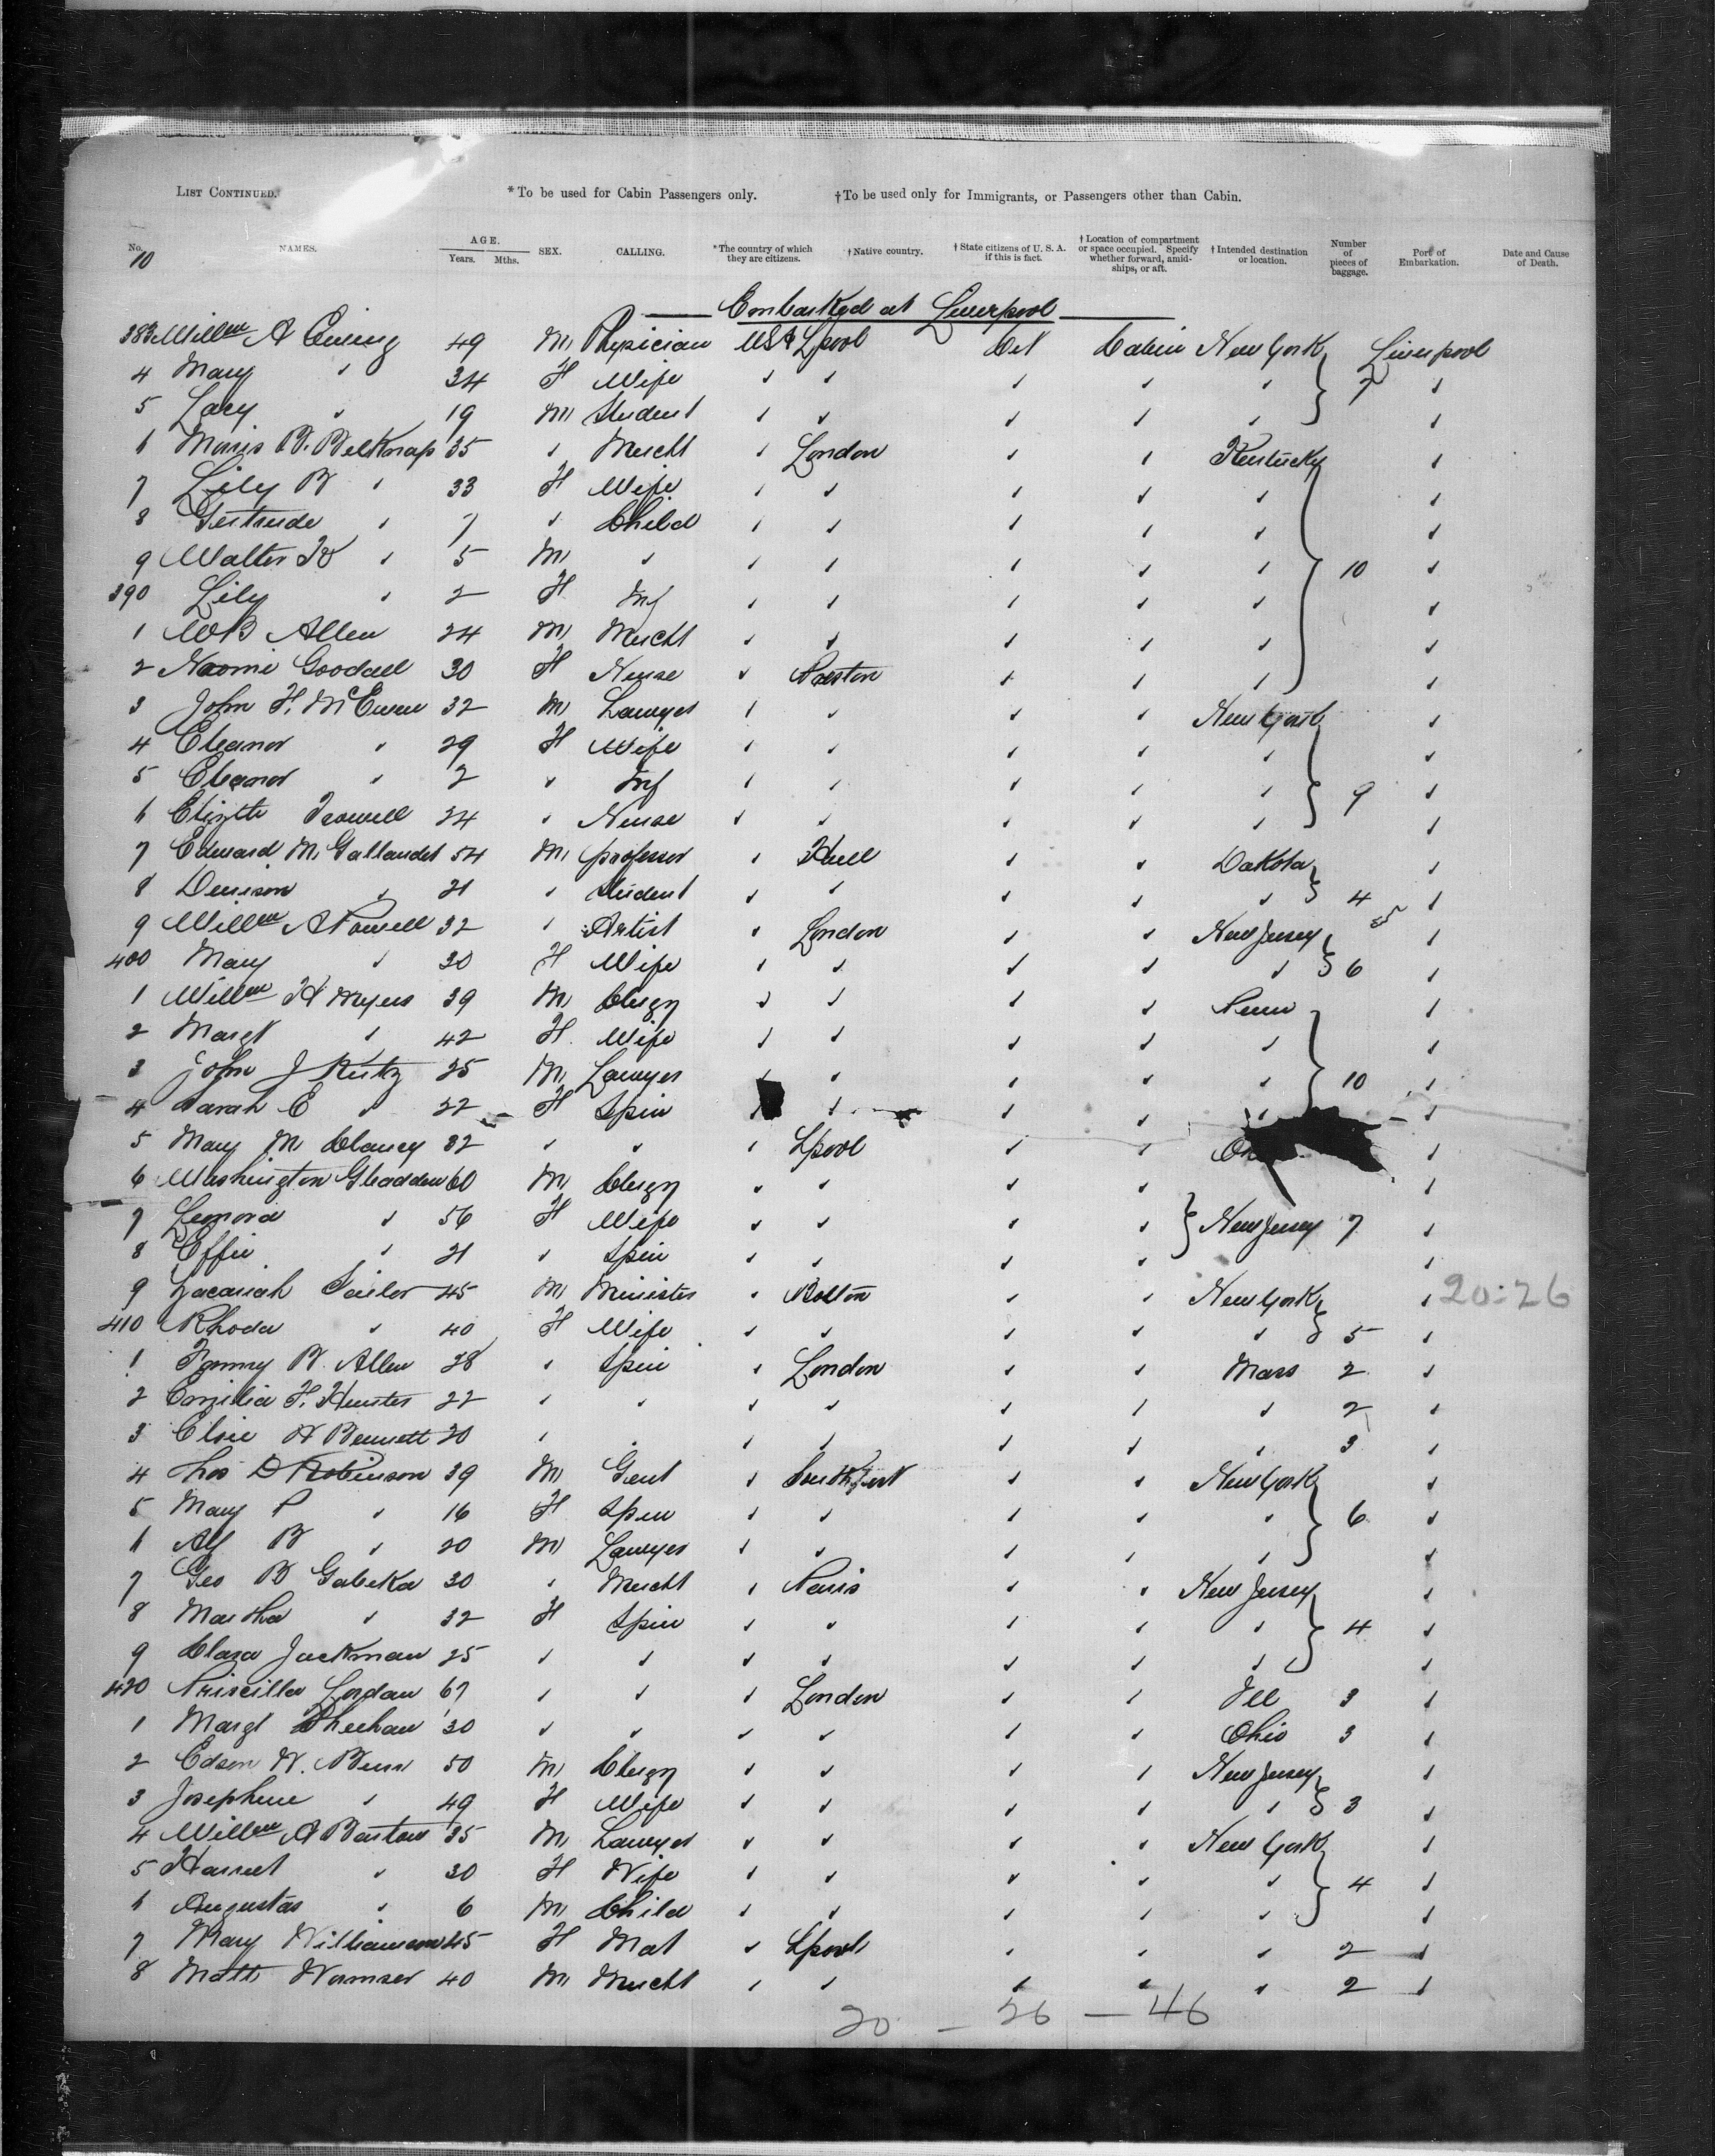 LIST CONTINUED. *To be used for Cabin Passengers only. †To be used only for Immigrants, or Passengers other than Cabin.
No. NAMES. AGE. Years. Mths. SEX. CALLING. *The country of which they are citizens. †Native country. †State citizens of U. S. A. if this is fact. †Location of compartment or space occupied. Specify whether forward, amid-ships, or aft. †Intended destination or location. Number of pieces of baggage. Port of Embarkation. Date and Cause of Death.
10
Embarked at Liverpool
383 Willm A Ewing 49 M Physician USA Lpool Cit Cabin New York Liverpool
4 Mary " 34 F Wife " " " " " 7 "
5 Lacy " 19 M Student " " " " " "
6 Morris B. Belknap 35 " Mercht " London " " Kentucky "
7 Lily B " 33 F Wife " " " " " "
8 Gertrude " 7 " Child " " " " " "
9 Walter " 5 M " " " " " " 10 "
390 Lily " 2 F Inf " " " " " "
1 WB Allen 24 M Mercht " " " " " "
2 Naomi Goodall 30 F Nurse " Preston " " " "
3 John F. McEwen 32 M Lawyer " " " " New York "
4 Eleanor " 29 F Wife " " " " " "
5 Eleanor " 2 " Inf " " " " " 9 "
6 Elizth 24 " Nurse " " " " " "
7 Edward M Gallaudet 54 M professor " Hull " " Dakota "
8 Denison " 21 " Student " " " " " 4 "
9 Willm A Powell 32 " Artist " London " " New Jersey "
400 Mary " 30 F Wife " " " " " 6 "
1 Willm H Myers 39 M Clergy " " " " Penn "
2 Margt " 42 F Wife " " " " " "
3 John J Kutz 25 M Lawyer " " " " " 10 "
4 Sarah E " 22 F Spin " " " " " "
5 Mary M Clancy 32 " " " Lpool " " "
6 Washington Gladden 60 M Clergy " " " " "
7 Leonora " 56 F Wife " " " " New Jersey 7 "
8 Effie " 21 " Spin " " " " "
9 Zacariah Sailor 45 M Minister " Bolton " " New York " 20:26
410 Rhoda " 40 F Wife " " " " " 5 "
1 Fanny B. Allen 28 " Spin " London " " Mass 2 "
2 Emilia F. Hunter 22 " " " " " " " 2 "
3 Elsie W Bennett 20 " " " " " " " 3 "
4 Thos D Robinson 39 M Gent " Southport " " New York "
5 Mary P " 16 F Spin " " " " " 6 "
6 Alf B " 20 M Lawyer " " " " " "
7 Geo B 30 " Mercht " Paris " " New Jersey "
8 Martha " 32 F Spin " " " " " 4 "
9 Clara Jackman 25 " " " " " " " "
420 Priscilla Lordan 67 " " " London " " Ill 3 "
1 Margt Sheehan 30 " " " " " " Ohio 3 "
2 Edson W. Burr 50 M Clergy " " " " New Jersey "
3 Josephine " 49 F Wife " " " " " 3 "
4 Willm A Barstow 35 M Lawyer " " " " New York "
5 Harriet " 30 F Wife " " " " " 4 "
6 Augustas " 6 M Child " " " " " "
7 Mary Williamson 45 F Mat " Lpool " " " 2 "
8 Matt Wormser 40 M Mercht " " " " " 2 "
20 – 26 – 46